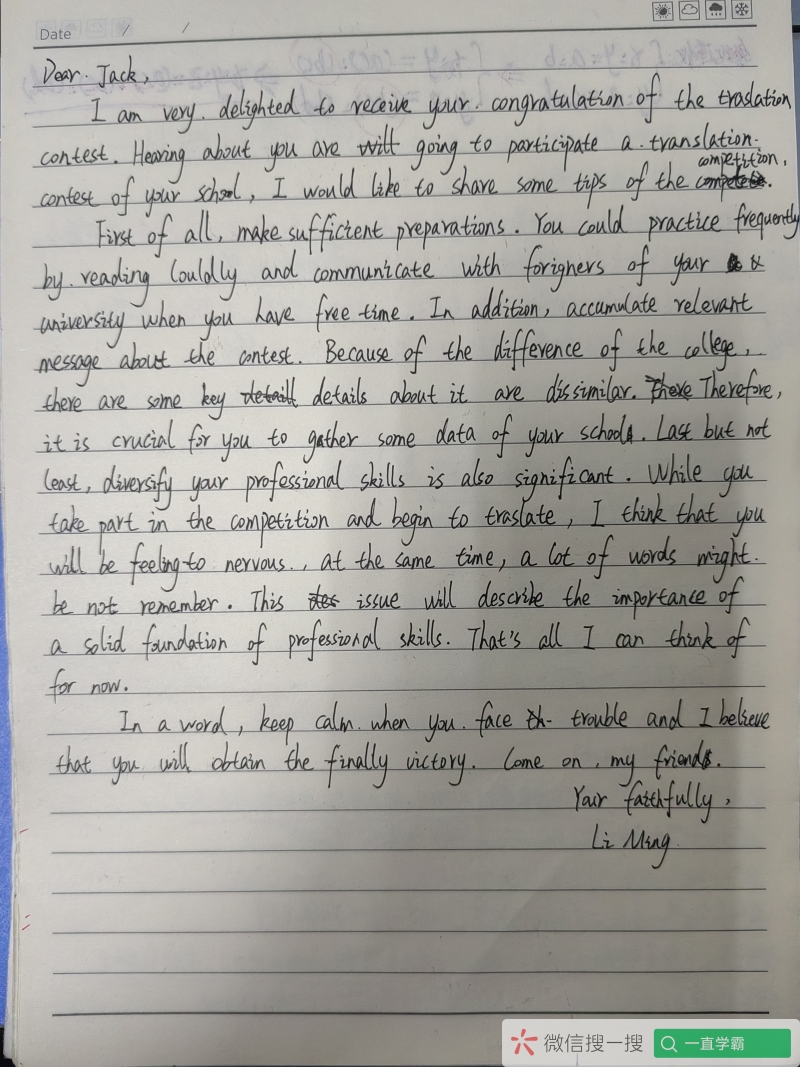 Date / /
Dear. Jack,
I am very. delighted to receive your. congratulation of the traslation
contest. Hearing about you are will going to participate a translation.
competition.
contest of your school, I would like to share some tips of the
First of all, make sufficient preparations. You could practice frequently
by. reading louldly and communicate with forigners of your
university when you have free time. In addition, accumulate relevant
message about the contest. Because of the difference of the college,
there are some key detaill details about it are dissimilar. There Therefore,
it is crucial for you to gather some data of your school. Last but not
least, diversify your professional skills is also significant. While you
take part in the competition and begin to traslate, I think that you
will be feeling to nervous., at the same time, a lot of words might.
be not remember. This issue will describe the importance of
a solid foundation of professional skills. That's all I can think of
for now.
In a word, keep calm. when you. face th- trouble and I believe
that you will obtain the finally victory. Come on, my friend.
Your faithfully,
Li Ming
微信搜一搜
一直学霸